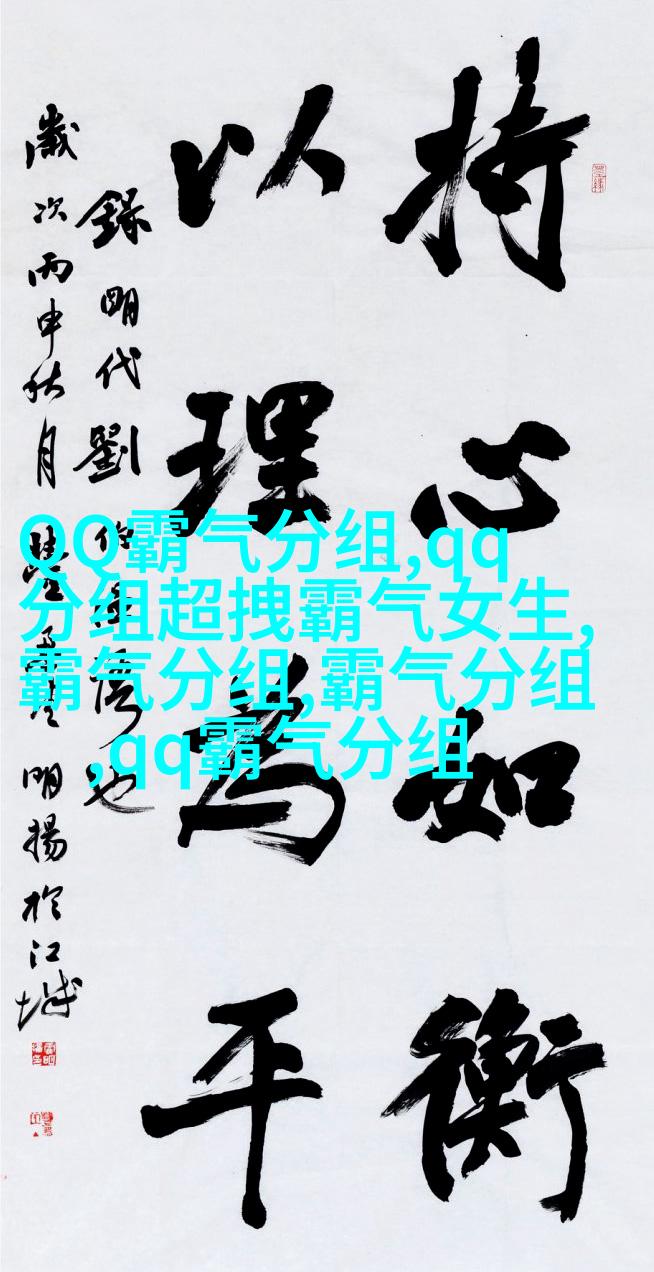 持心如衡
以理為平
錄明代劉伯溫語也
歲次丙申秋月
明揚於江城
QQ霸气分组,qq
分组超拽霸气女生,
霸气分组,霸气分组
,qq霸气分组